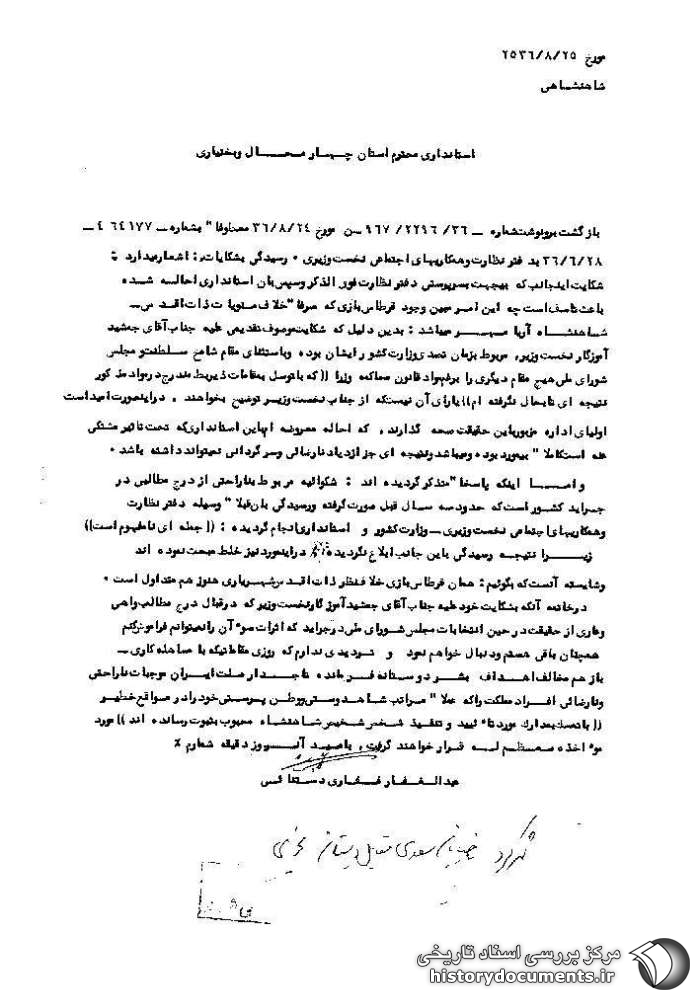 مورخ ۲۵۳٦/۸/۲۵
شاهنشاهی
استانداری محترم استان چهار محال وبختیاری
بازگشت برونوشت شماره ــ ۳٦/ ۲۲۹٦/ ۹٦۷ ــ ن مورخ ۳٦/۸/۲٤ معطوفا" بشماره ــ ٦٤۱۷۷ ٤ ــ
۳٦/٦/۲۸ به دفتر نظارت وهمکاریهای اجتماعی نخست وزیری ۰ رسیدگی بشکایات : اشعار میدارد :
شکایت اینجانب که بیجهت بسرپرستی دفتر نظارت فوق الذکر وسپس بان استانداری احاله شده
باعث تاسف است چه این امر مبین وجود قرطاس بازی که صرفا" خلاف منویات ذات اقدس
شاهنشاه آریا مهر میباشد : بدین دلیل که شکایت موصوف تقدیمی علیه جناب آقای جمشید
آموزگار نخست وزیر، مربوط بزمان تصدی وزارت کشور ایشان بوده وباستثنای مقام شامخ سلطنت و مجلس
شورای ملی هیچ مقام دیگری را برفهواد قانون محاکمه وزرا (( که باتوسل بمقامات ذیربط مندرج در مواد مذکور
نتیجه ای تابحال نگرفته ام)) یارای آن نیست که از جناب نخست وزیر توضیح بخواهند ۰ دراینصورت امید است
اولیای اداره مزبور باین حقیقت صحه گذارند، که احاله معروضه ام باین استانداری که تحت تاثیر
است کاملا" بیمورد بوده ومیباشد ونتیجه ای جز ازدیاد نارضائی وسرگردانی نمیتواند داشته باشد ۰
و امـا اینکه پاسخا" متذکر گردیده اند : شکوائیه مربوط بناراحتی از درج مطالبی در
جراید کشور است که حدود سه سال قبل صورت گرفته ورسیدگی بان قبلا" وسیله دفتر نظارت
وهمکاریهای اجتماعی نخست وزیری ــ وزارت کشور و استانداری انجام گردیده : (( جمله ای نامفهوم است))
زیـرا نتیجه رسیدگی باین جانب ابلاغ نگردیده دراینمورد نیز خلط مبحث نموده اند
وشایسته آنست که بگوئیم : همان قرطاس بازی خلاف نظر ذات اقدس شهریاری هنوز هم متداول است ۰
درخاتمه آنکه بشکایت خود علیه جناب آقای جمشید آموزگار نخست وزیر که درقبال درج مطالب واهی
وعاری از حقیقت در حین انتخابات مجلس شورای ملی در جراید که اثرات سوء آن را نمیتوانم فراموش کنم
همچنان باقی هستم ودنبال خواهم نمود و تردیدی ندارم که روزی مقاماتیکه با مسامحه کاری ــ
بازهم مخالف اهداف بشر دوستانه فرمانده تاجدار ملت ایران موجبات ناراحتی
ونارضائی افراد مملکت را که عملا" مراتب شاهدوستی ووطن پرستی خود را در مواقع خطیر
(( باتمسک بمدارک مورد تائید و تنفیذ شخص شخیص شاهنشاه محبوب بثبوت رسانده اند )) مورد
مواخذه معظم له قرار خواهند گرفت، بامید آنروز دقیقه شمارم ٪
عبدالغفار فخاری دستنائی
شهرکرد خیابان سعدی مقابل دبستان
مرکز بررسی اسناد تاریخی
historydocuments.ir